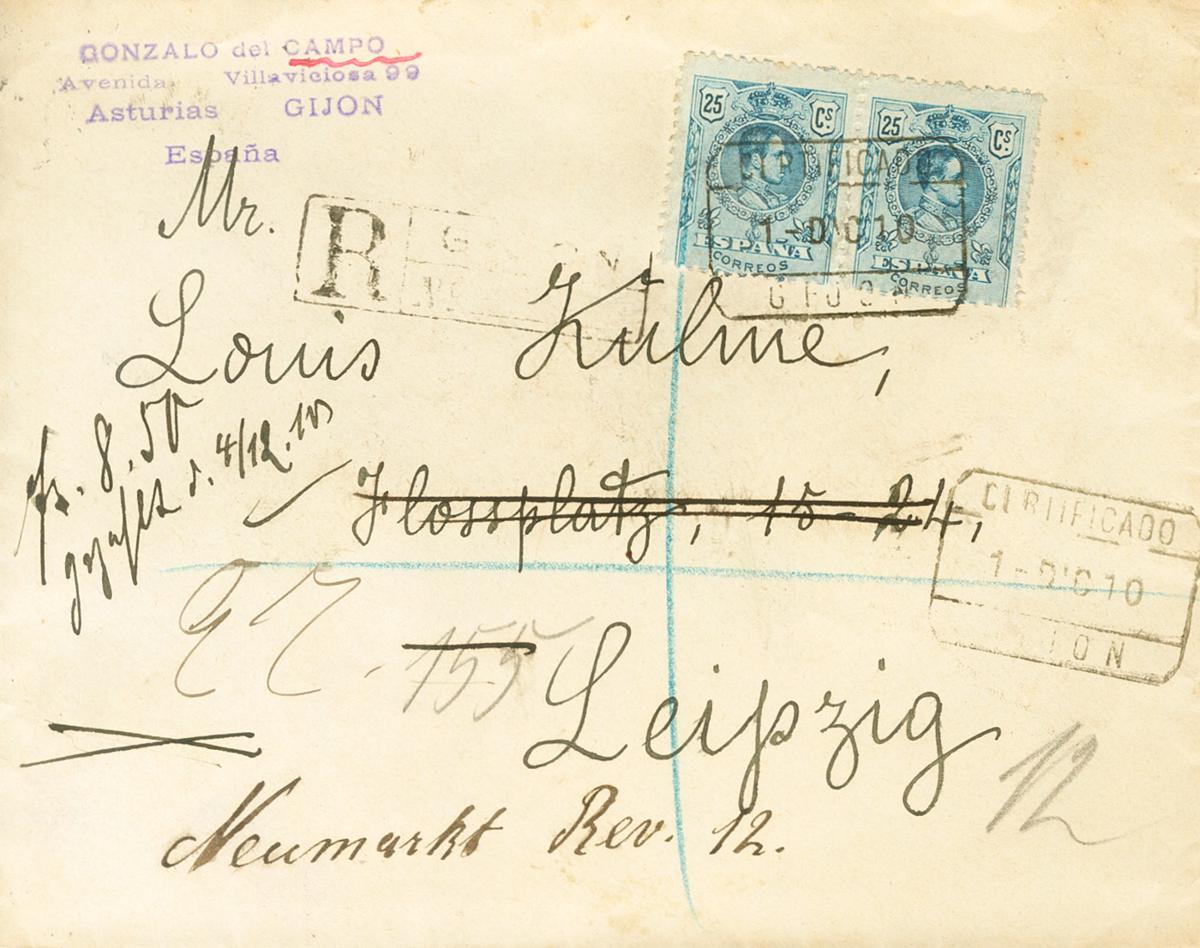 GONZALO del CAMPO
Avenida Villaviciosa 99
Asturias GIJON
España
25 Cs.
ESPAÑA
CORREOS
25 Cs.
ESPAÑA
CORREOS
CERTIFICADO
1-DIC10
GIJON
R
Mr.
Louis Kuhne,
8.50
d. 4/12.10
Flossplatz, 15-24,
CERTIFICADO
1-DIC10
IJON
155
Leipzig
12
Neumarkt Rev. 12.